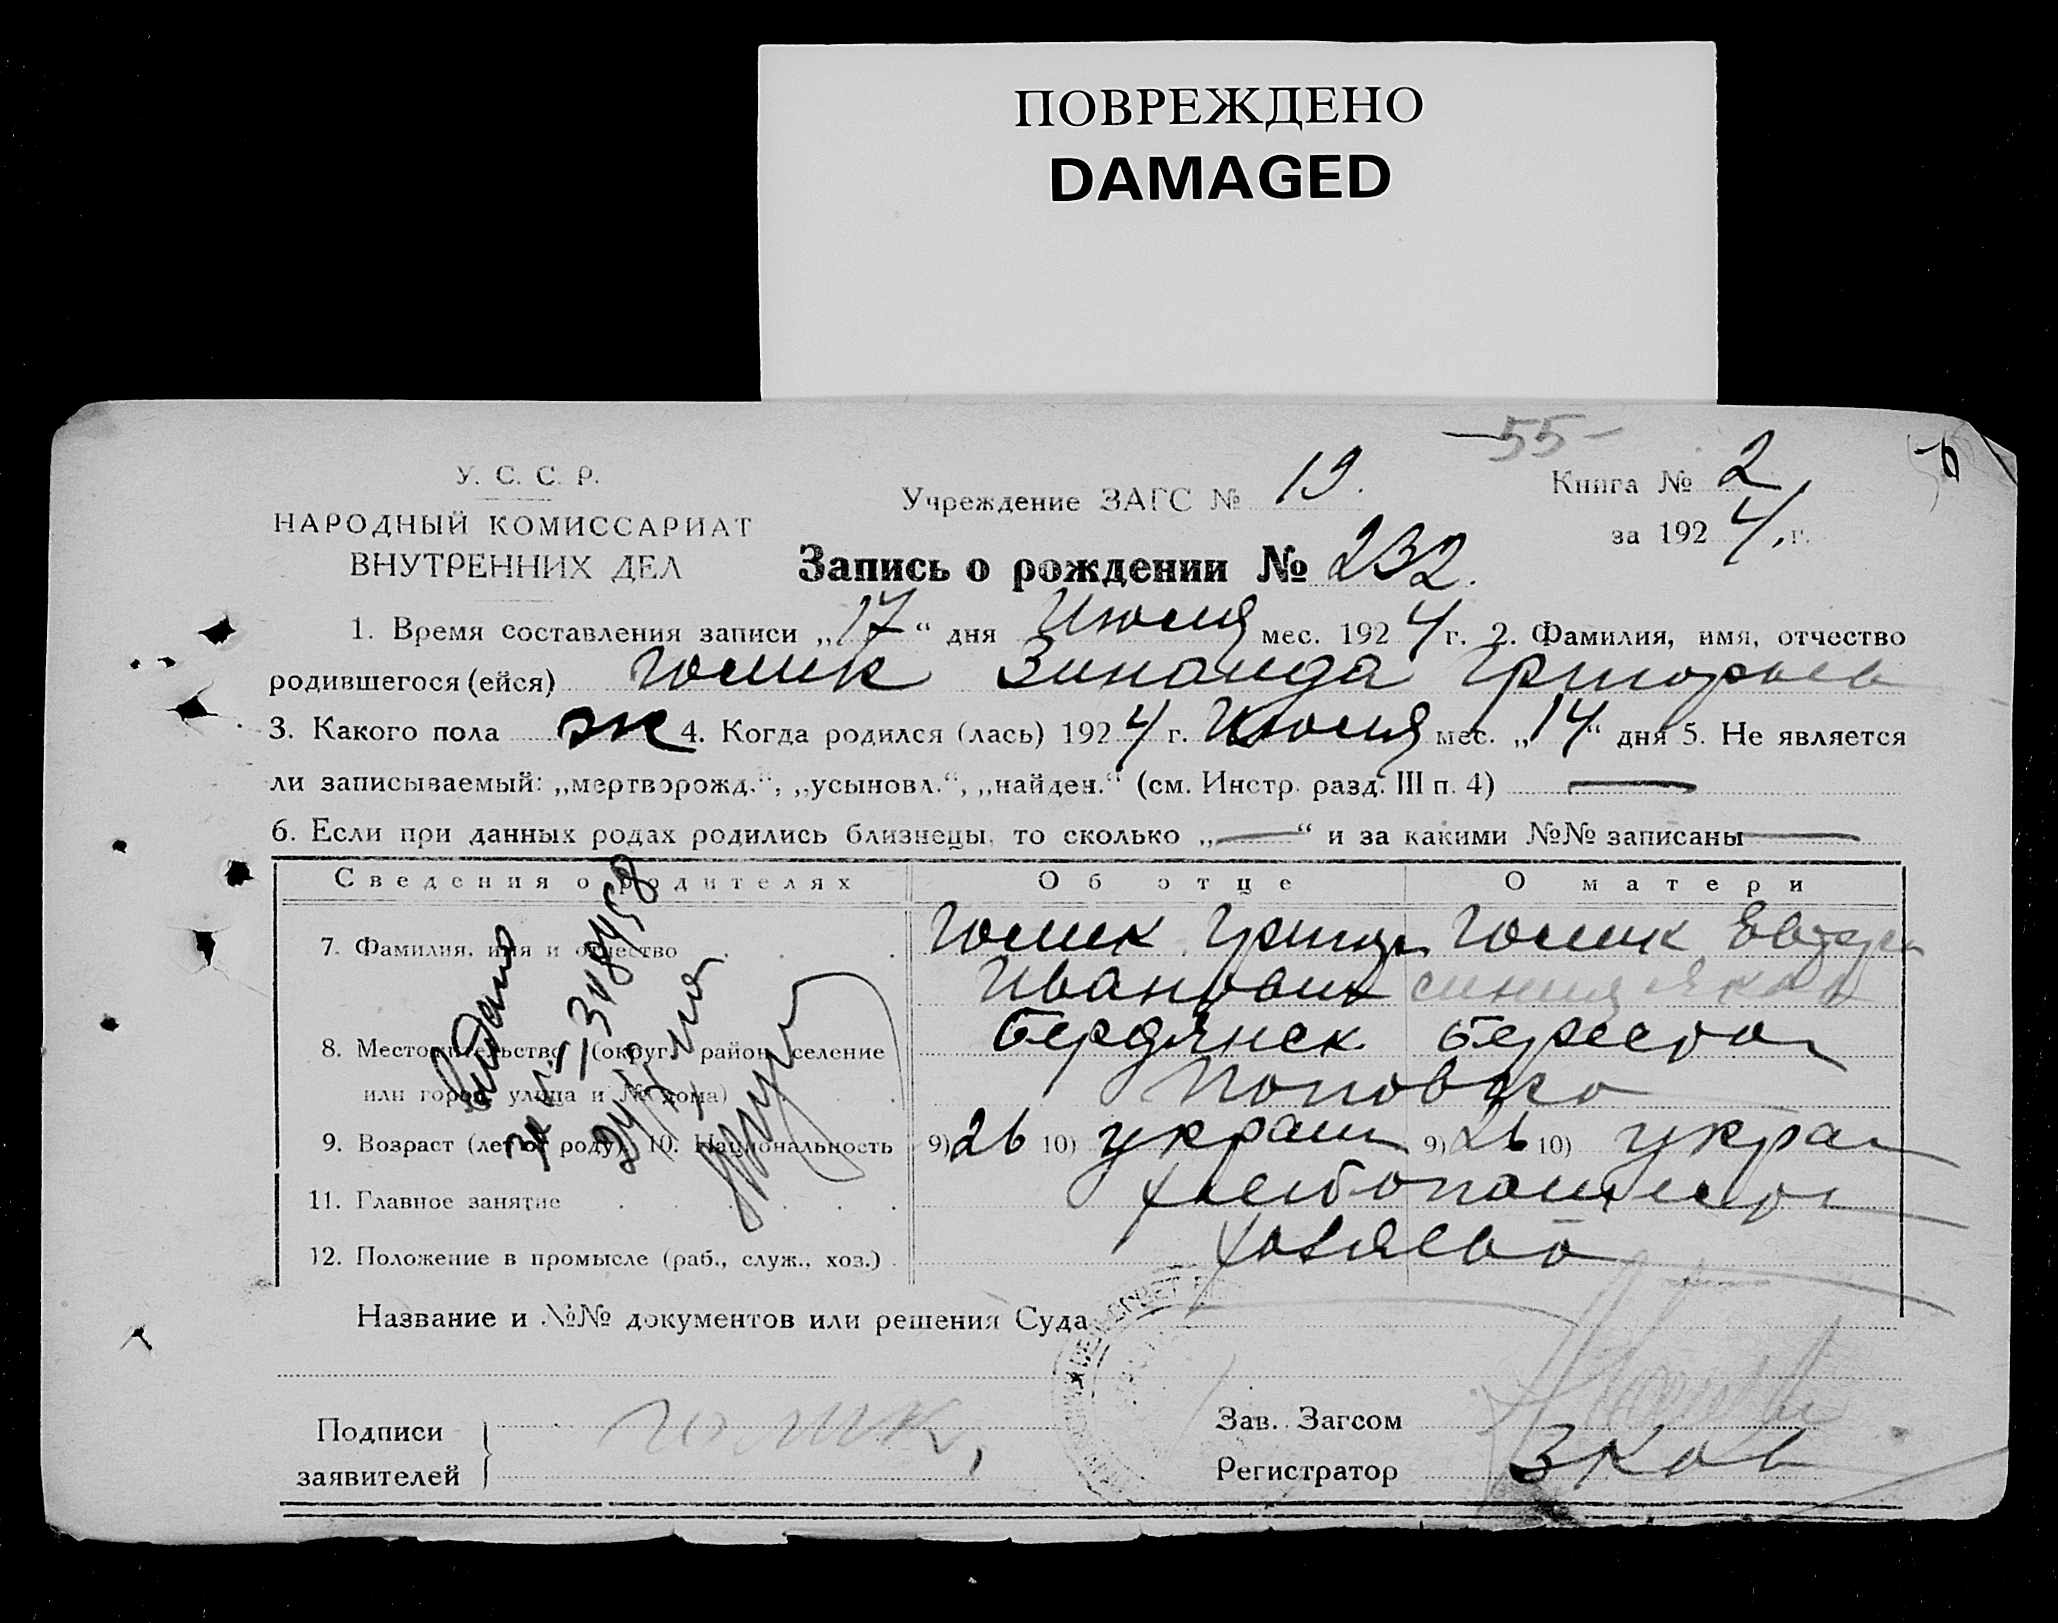 ПОВРЕЖДЕНО
DAMAGED
—55—
У. С. С. Р.
НАРОДНЫЙ КОМИССАРИАТ
ВНУТРЕННИХ ДЕЛ
Учреждение ЗАГС № 19.
Книга № 2
за 1924 г.
Запись о рождении № 232.
1. Время составления записи „17“ дня Июля мес. 1924 г. 2. Фамилия, имя, отчество
родившегося (ейся) Гомик Зинаида Григорьев
3. Какого пола ж 4. Когда родился (лась) 1924 г. Июля мес. „14“ дня 5. Не является
ли записываемый: „мертворожд.“, „усыновл.“, „найден.“ (см. Инстр. разд. III п. 4) —
6. Если при данных родах родились близнецы, то сколько „—“ и за какими №№ записаны —
Сведения о родителях Об отце О матери
7. Фамилия, имя и отчество Гомик Григор Гомик Евдок
Иванович
8. Местожительство (округ, район, селение Бердянск
или город, улица и № дома)
9. Возраст (лет от роду). 10. Национальность 9) 26 10) украин 9) 26 10) украин
11. Главное занятие хлебопашество
12. Положение в промысле (раб., служ., хоз.) хозяева
Название и №№ документов или решения Суда
Подписи
заявителей
Гомик,
Зав. Загсом
Регистратор